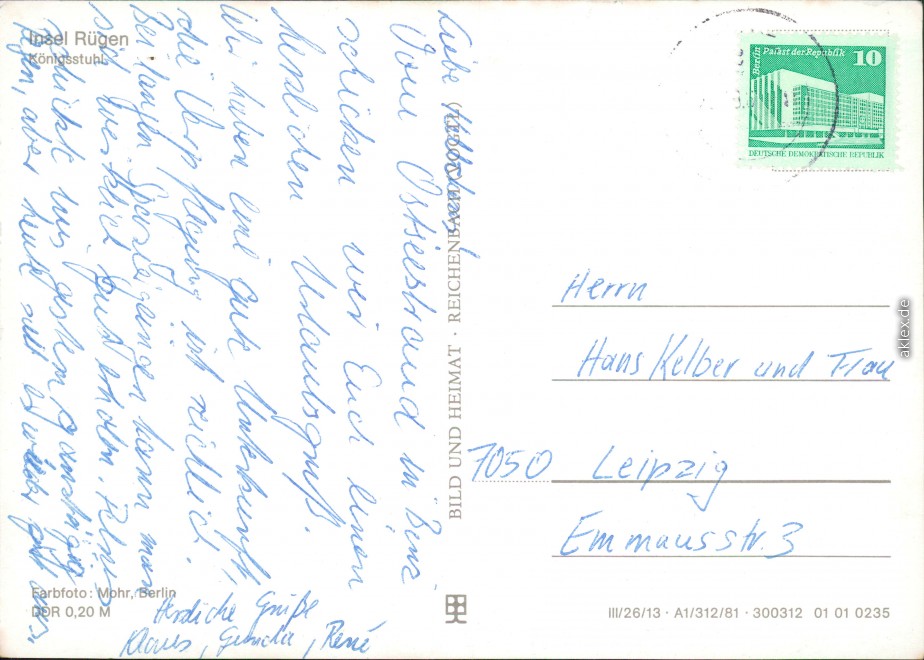 Insel Rügen
Königsstuhl
Liebe
Vom Ostseestrand in Binz
schicken wir Euch einen
herzlichen Urlaubsgruß.
Wir haben eine gute Unterkunft,
die Verpflegung ist reichlich.
Bei langen Spaziergängen kann man
sich wirklich gut erholen.
uns gestern
Regen, aber heute
Herzliche Grüße
Klaus, René
Farbfoto: Mohr, Berlin
DDR 0,20 M
BILD UND HEIMAT · REICHENBACH (VOGTL)
Berlin Palast der Republik 10
DEUTSCHE DEMOKRATISCHE REPUBLIK
Herrn
Hans Kelber und Frau
7050 Leipzig
Emmausstr. 3
III/26/13 · A1/312/81 · 300312 01 01 0235
aklex.de